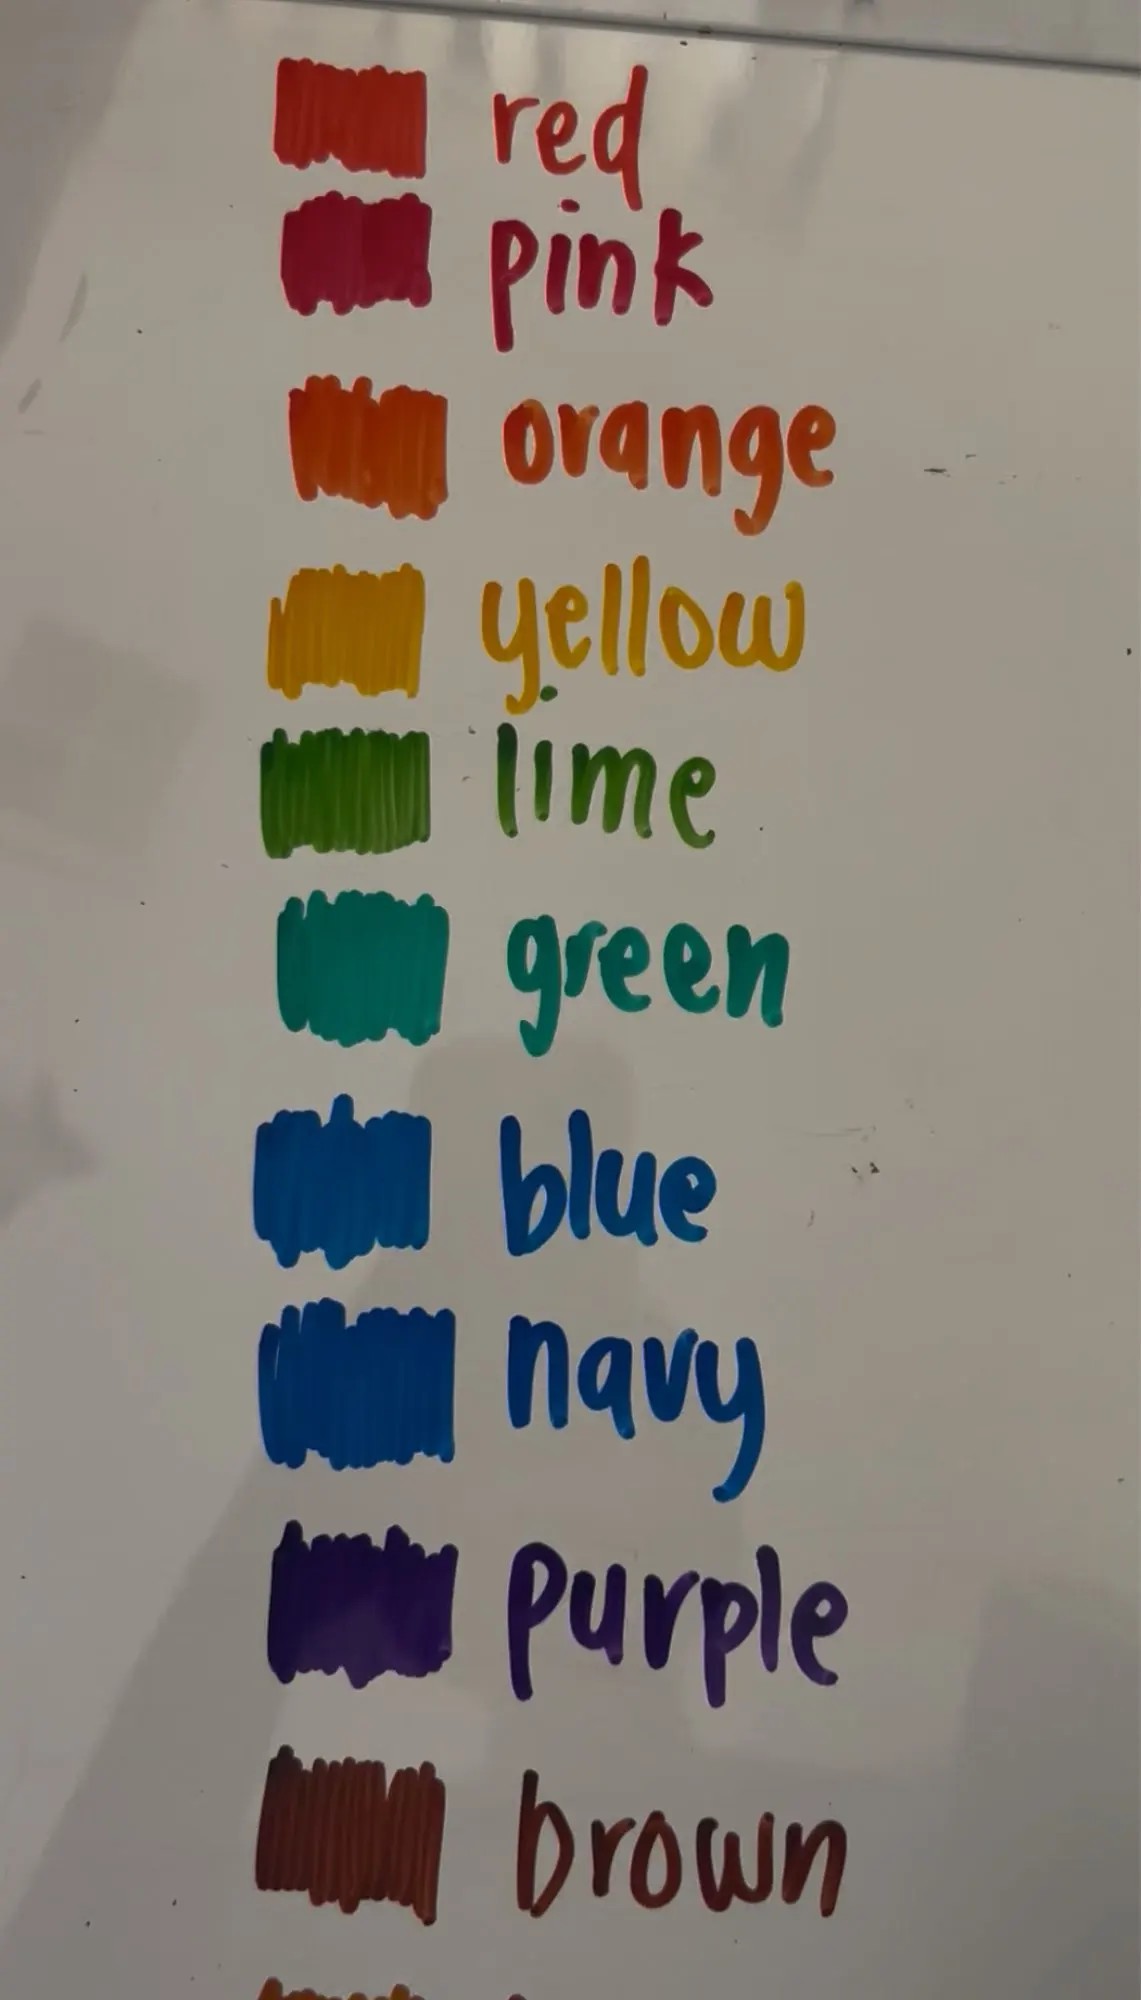 red
pink
orange
yellow
lime
green
blue
navy
purple
brown